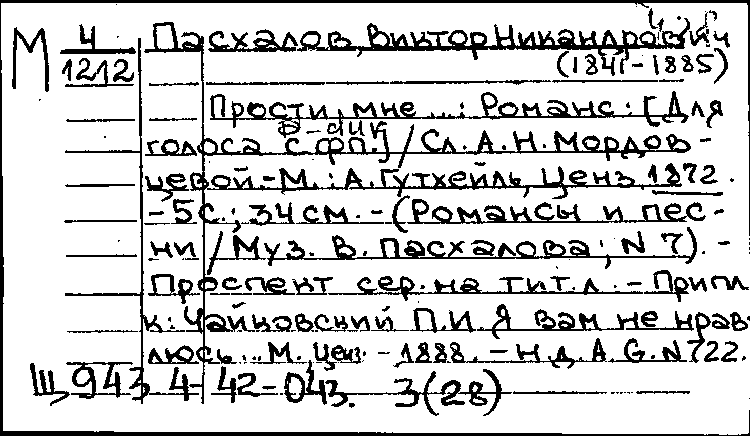 М 4/1212 Пасхалов, Виктор Никандрович
(1841-1885)
Прости, мне ...: Романс: [Для
голоса с фп.] / Сл. А.Н. Мордов-
цевой.-М.: А. Гутхейль, Ценз. 1872.
-5с.; 34см. - (Романсы и пес-
ни / Муз. В. Пасхалова; N 7). -
Проспект сер. на тит.л. - Припл.
к: Чайковский П.И. Я вам не нрав-
люсь... М., Ценз. - 1888. - Н.д. A.G. N 722.
Щ 943 4-42-043. 3(28)